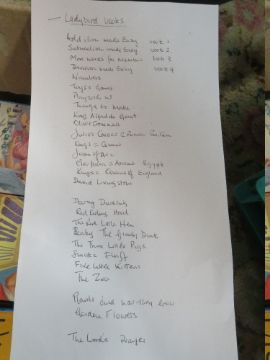 — Ladybird books
Addition made Easy book 1
Subtraction made Easy book 2
book 3
Division made Easy book 4
Numbers
Toys & Games
Playbook
Things to Make
King Alfred the Great
Oliver Cromwell
Julius Caesar & Roman Britain
Kings &
Joan of Arc
Cleopatra & Ancient Egypt
Kings & Queens of England
David Livingstone
Downy Duckling
Red Riding Hood
The Little Red Hen
The Greedy Duck
The Three Little Pigs
Five Little Kittens
The Zoo
Plants and how they grow
Garden Flowers
The Lord's Prayer